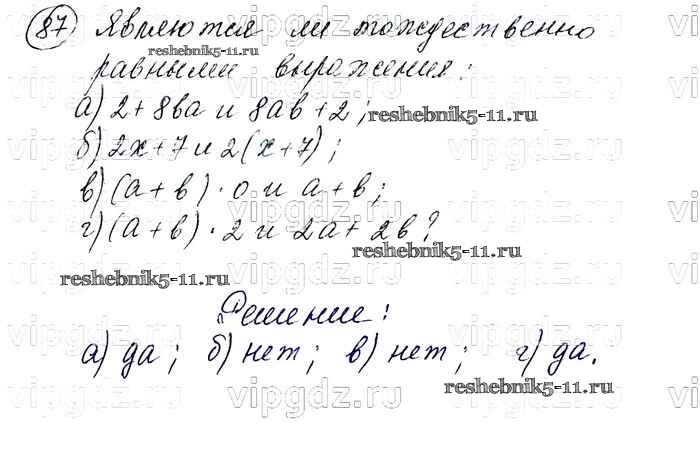 87 Являются ли тождественно
reshebnik5-11.ru
равными выражения:
а) 2 + 8ва и 8ав + 2; reshebnik5-11.ru
б) 2х + 7 и 2(х + 7);
в) (а + в) · 0 и а + в;
г) (а + в) · 2 и 2а + 2в?
reshebnik5-11.ru
reshebnik5-11.ru
Решение:
а) да; б) нет; в) нет; г) да.
reshebnik5-11.ru
vipgdz.ru